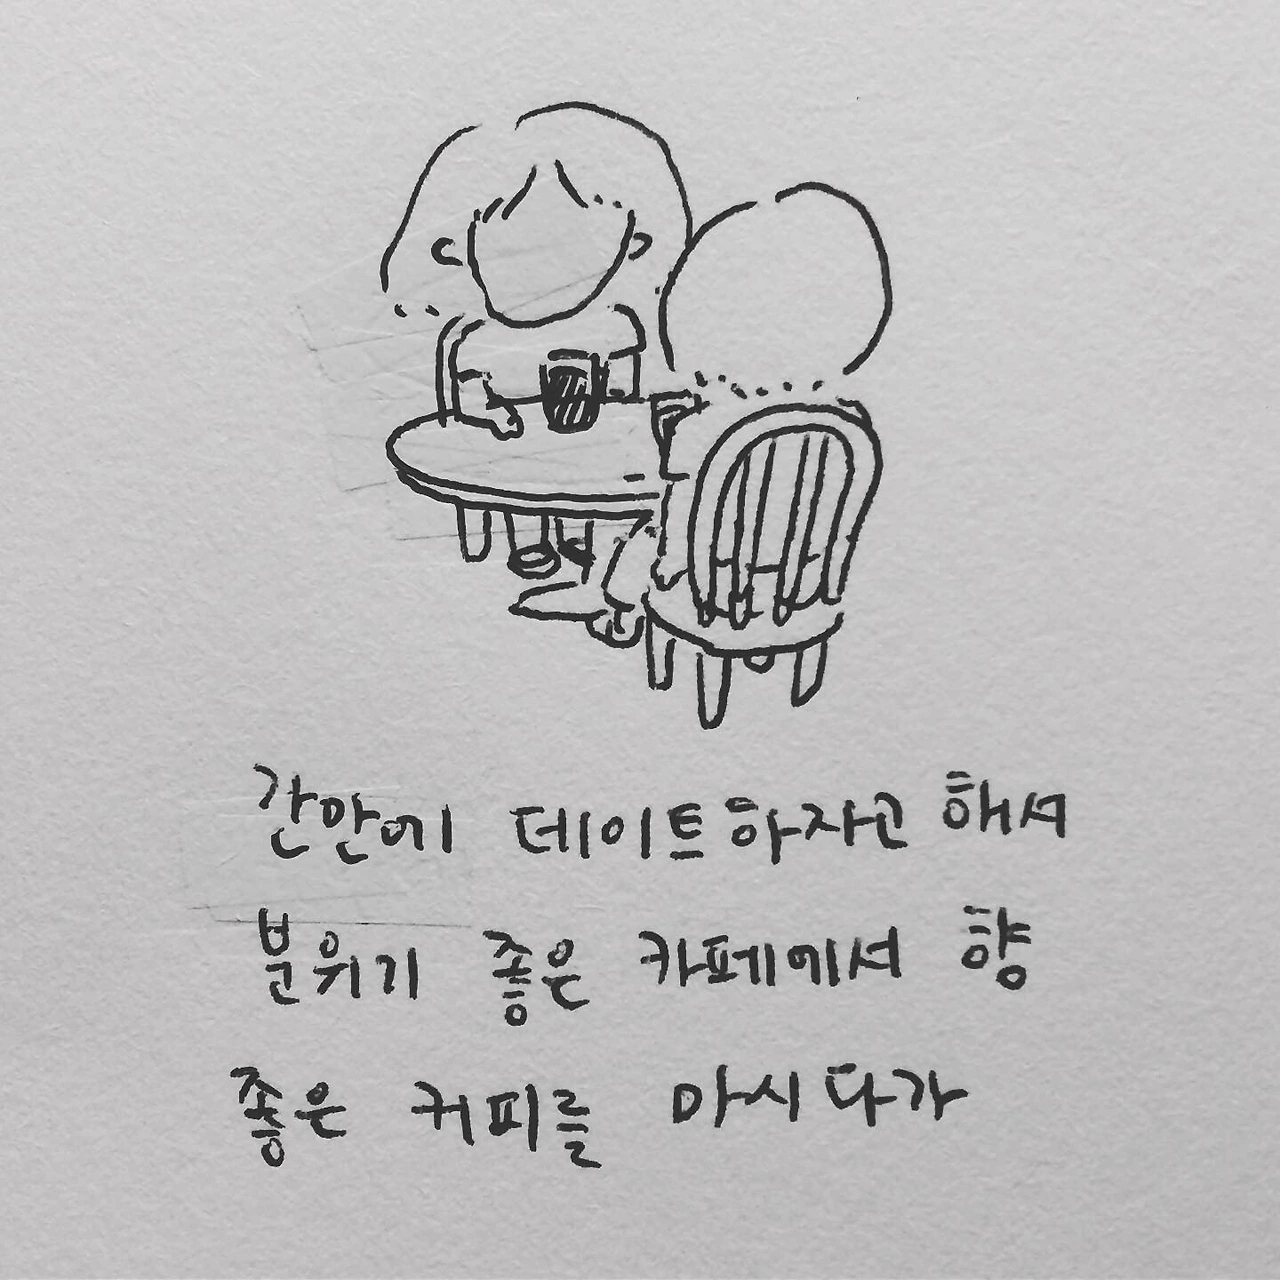 간만에 데이트하자고 해서
분위기 좋은 카페에서 향
좋은 커피를 마시다가